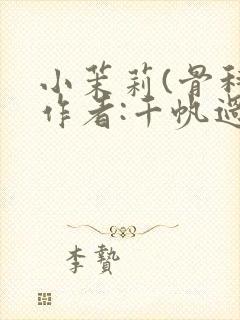 小茉莉(骨科
作者:千帆過
李贄